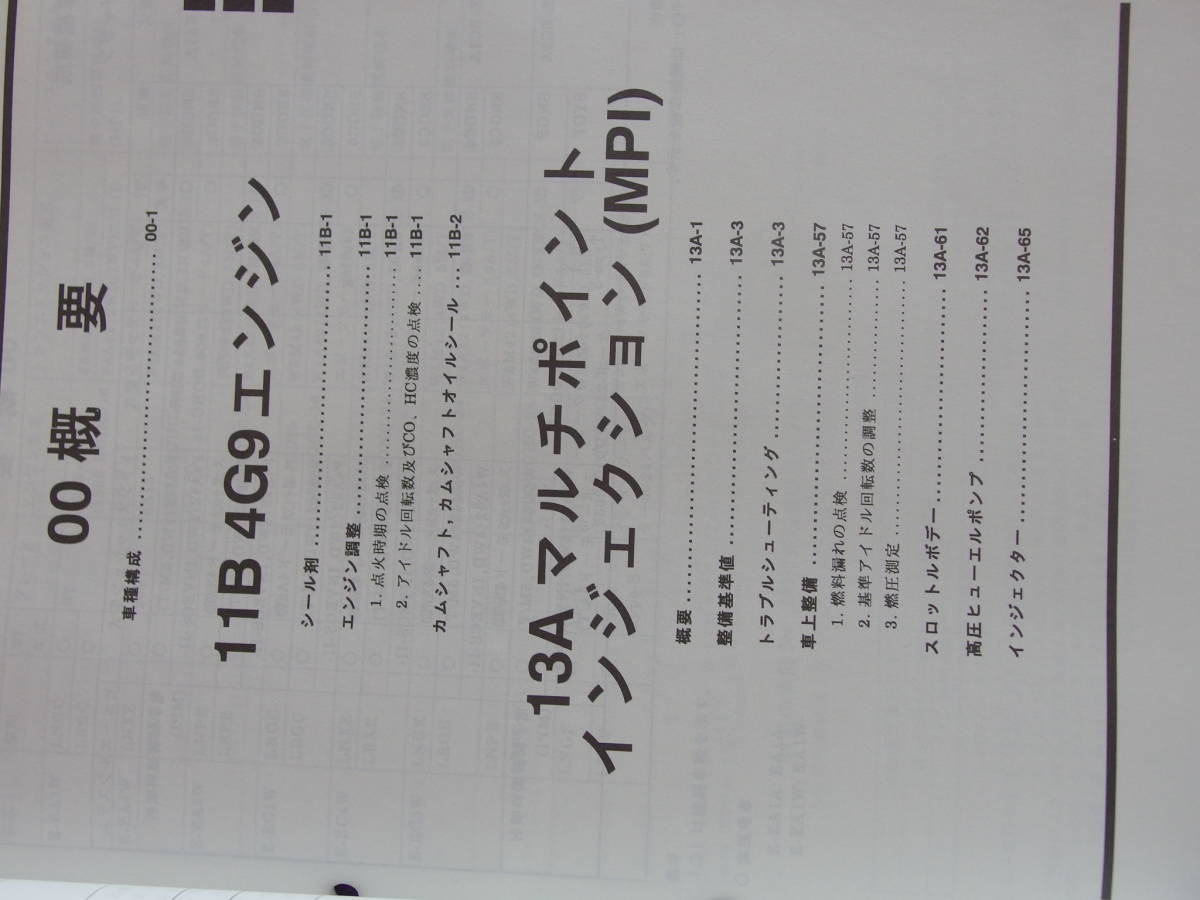 00 概 要
車種構成 ........................................ 00-1
11B 4G9エンジン
シール剤 ........................................ 11B-1
エンジン調整 ........................................ 11B-1
1. 点火時期の点検 ........................................ 11B-1
2. アイドル回転数及びCO、HC濃度の点検 ... 11B-1
カムシャフト,カムシャフトオイルシール ... 11B-2
13Aマルチポイント
インジェクション(MPI)
概要 ........................................ 13A-1
整備基準値 ........................................ 13A-3
トラブルシューティング ........................................ 13A-3
車上整備 ........................................ 13A-57
1. 燃料漏れの点検 ........................................ 13A-57
2. 基準アイドル回転数の調整 ........................................ 13A-57
3. 燃圧測定 ........................................ 13A-57
スロットルボデー ........................................ 13A-61
高圧ヒューエルポンプ ........................................ 13A-62
インジェクター ........................................ 13A-65